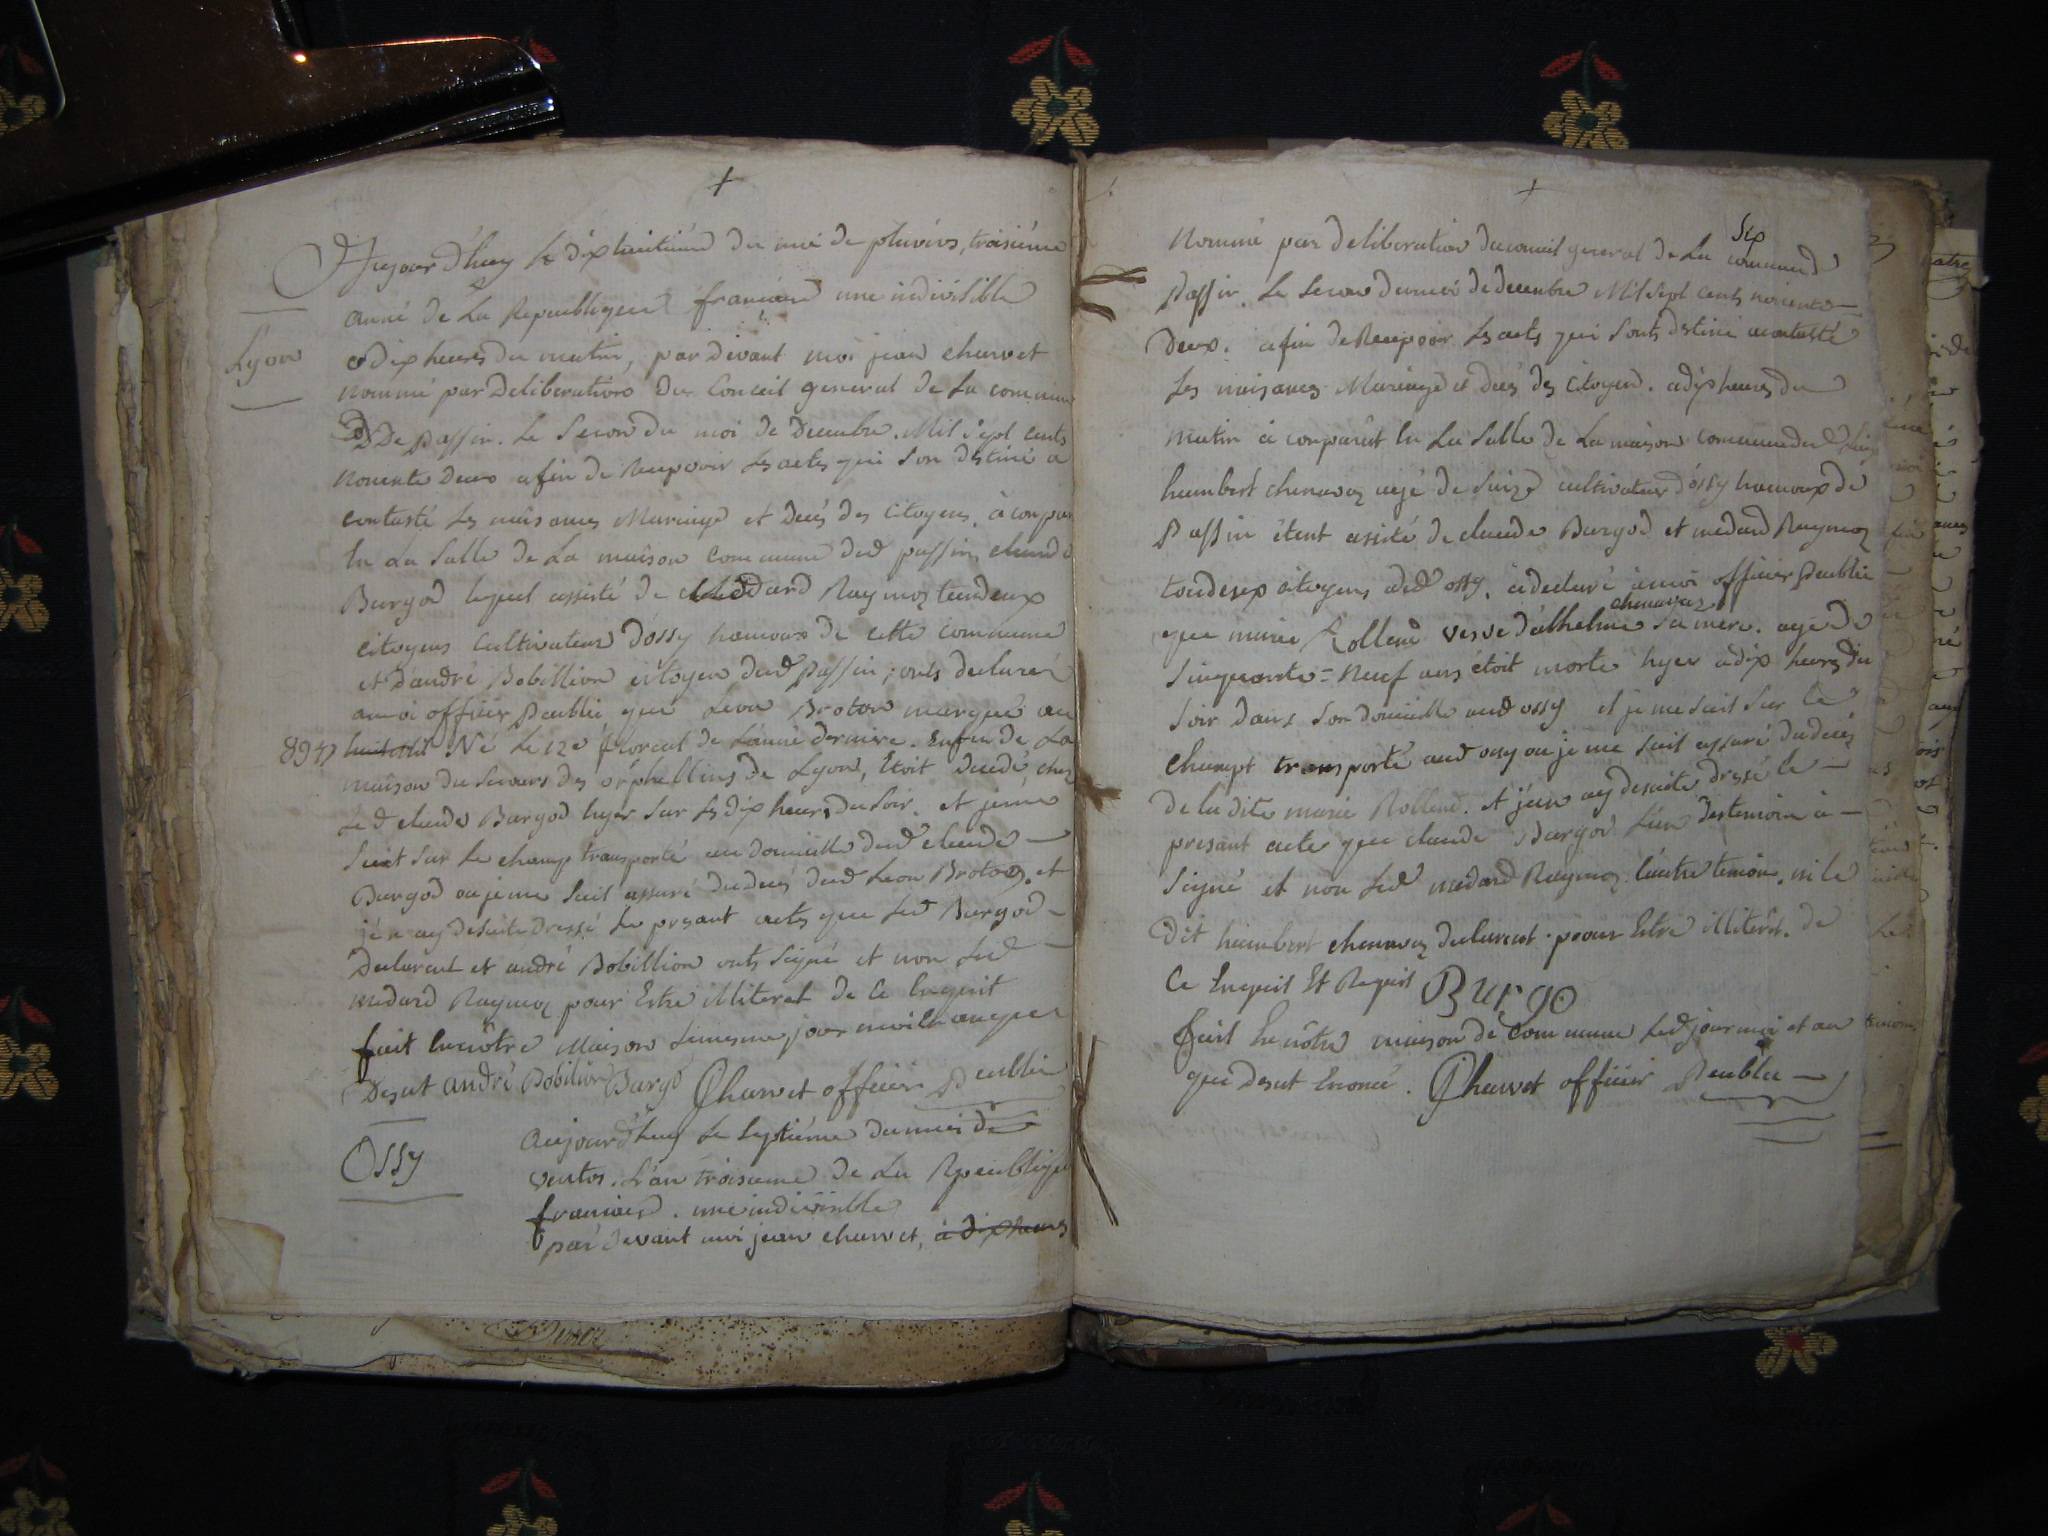 Aujourdhuy le dixhuitième du moi de pluvios, troisième
anné de La Republique française une indivisible
Lyon
a dix heures du matin, par devant moi jean charvet
nommé par Deliberations du Conseil general de La commune
De passin. Le Second du moi de Decembre. Mil Sept cents
nonente Deux afin de Recepvoir Les actes qui Son destiné a
contasté Les naisances Mariage et Decés des Citoyens. à conparu
en La Salle de La maison commune dud passin claude
Burgod lequel assisté de Meddard Raymoz tendeux
citoyens cultivateurs d'ossy hamoux de cette commune
et d'andré Bobillion citoyen dud passin; onts declaré
amoi officier Peublic que Leon Broton marqué au
8947 Né Le 12e floreal de L'année dernire. Enfen de La
maison du Secours des orphellins de Lyon, Etoit decedé, chez
Led claude Burgod hyer Sur Les dix heures du Soir. et jeme
Suit Sur Le champ transporté au domicille dud claude
Burgod ou je me Suit assuré du decés dud Leon Broton. et
jé n ay desuite dressé Le presant acte que Led Burgod
Declarent et andré Bobillion onts Signé et non Led
medard Raymoz pour Estre illiteret de Ce Enquit
fait En nôtre Maison Lemesme jour mois et an que
Desut andré Bobilion Burgo Charvet officier Peublic
Ossy
Aujourd'huy Le Septième du moi de
ventos. L'an troisieme de La Rpeublique
française. une indivisible
par devant moi jean charvet, à dix heures
Six
Nommé par deliberation du conseil general de La commune
Passin. Le Second du moi de decembre Mil Sept cents nonente
Deux. afin de Recepvoir Les actes qui Sonts destiné acontasté
Les naisances Mariage et decés des Citoyen. a dix heures du
matin à conparût En La Salle de La maison commune dud
humbert chenavaz agé de Seize cultivateur d'ossy hamoux de
Passin étent asisté de claude Burgod et medard Raymoz
toudeux citoyens dud ossy. à declaré à moi officier Peublic
chenavaz
que marie Rolland vesve d'athelme Sa mere. agé de
Sinquante=Neuf ans étoit morte hyer a dix heures du
Soir dans Son domicille aud ossy et je me Suit Sur le
champt transporté aud ossy ou je me Suit assuré du decés
de la dite marie Rolland. et j'en ay desuite dressé le
presant acte que claude Burgod L'un des temoin à
Signé et non Led medard Raymoz L'autre temoin. ni le
dit humbert chenavaz declarent. pour Estre illiterét. de
Ce Enquit Et Requit Burgo
Fait En nôtre maison de Commune Led jour moi et an
que Desut Enoncé. Charvet officier Peublic